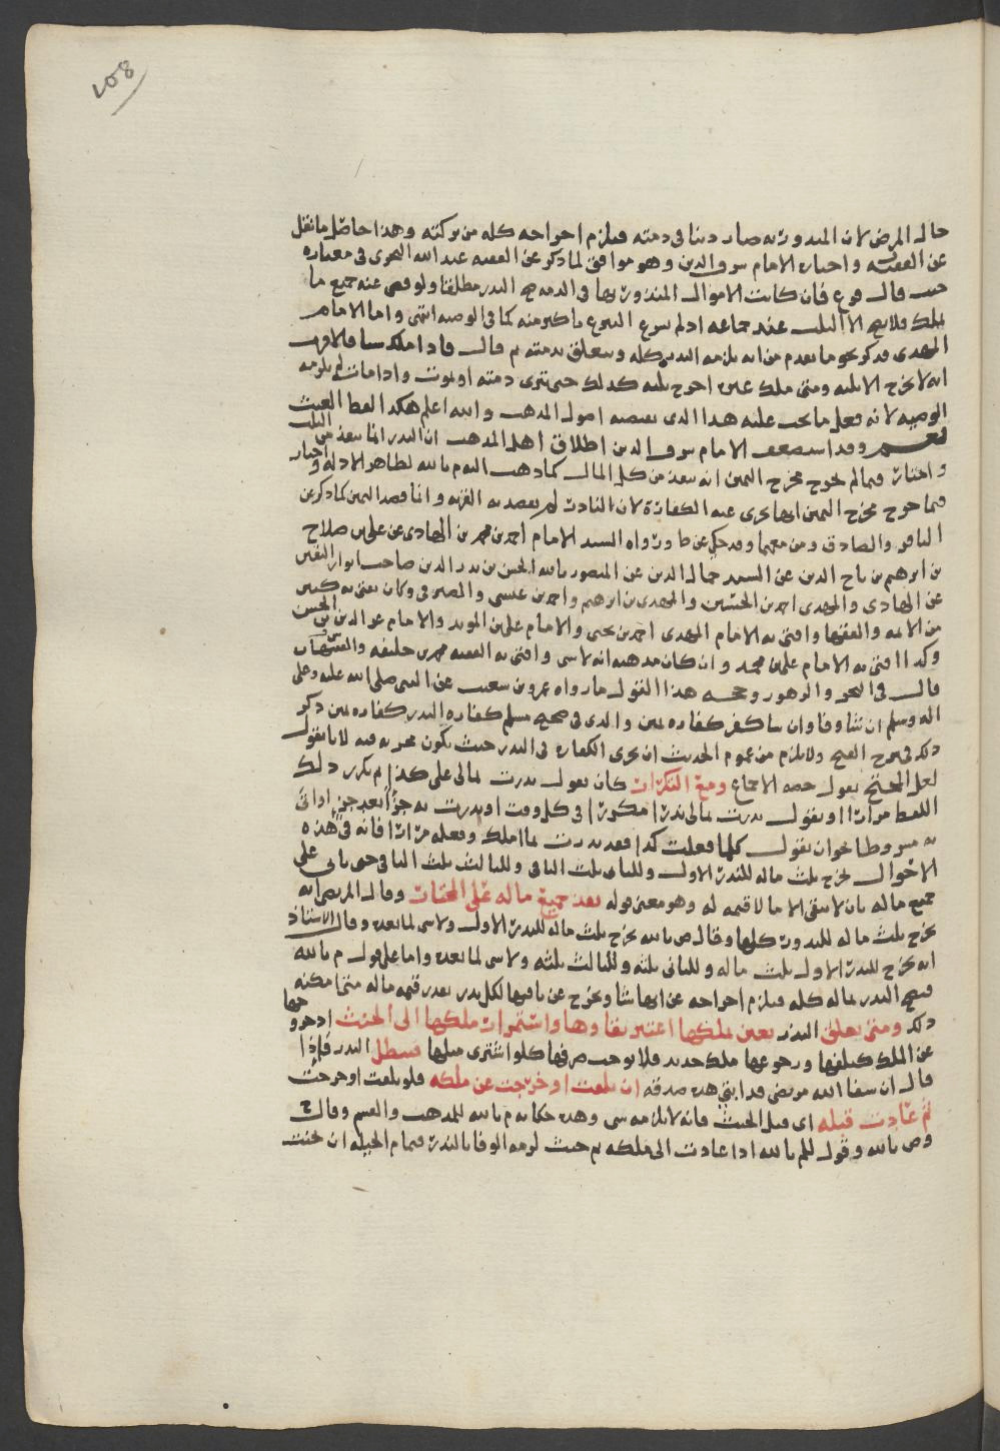 ٢٥٨
حال المرض لان المنذور به صار دينا في ذمته فيلزم اخراجه كله من تركته وهذا حاصل ما نقل
عن الفقيه واختاره الامام شرف الدين وهو موافق لما ذكر عن الفقيه عبد الله النجري في معياره
حيث قال فرع فان كانت الاموال المنذور بها في الذمه صح النذر مطلقا ولو في جميع ما
يملك فلا يصح الا الثلث عند جماعه اذ لم يسوغ التبرع باكثر منه كما في الوصيه انتهى واما الامام
المهدي فذكر نحو ما تقدم من انه يلزمه النذر كله ويتعلق بذمته ثم قال فاذا ملك شيا فالاقرب
انه لا يخرج الا ثلثه ومتى ملك غيره اخرج ثلثه كذلك حتى تبرى ذمته او يموت واذا مات لم يلزمه
الوصيه لانه فعل ما يجب عليه هذا الذي يقتضيه اصول المذهب والله اعلم هكذا لفظ الغيث
نعم وقد استضعف الامام شرف الدين اطلاق اهل المذهب ان النذر انما ينفذ من الثلث
واختار فيما لم يخرج مخرج اليمين انه ينفذ من كل المال كما ذهب اليه م بالله لظاهر الادله واختار
فيما خرج مخرج اليمين انها تجزي عنه الكفارة لان الناذر لم يقصد به القربه وانما قصد اليمين كما ذكر عن
الباقر والصادق ومن معهما وقد حكي عن طاوس ورواه السيد الامام احمد بن محمد بن الهادي عن علي بن صلاح
بن ابرهيم بن تاج الدين عن السيد جمال الدين عن المنصور بالله الحسن بن بدر الدين صاحب انوار اليقين
عن الهادي والمهدي احمد بن الحسين والمهدي بن ابرهيم واحمد بن عيسى والمصير في وكان يفتي به كثير
من الائمه والفقها وافتى به الامام المهدي احمد بن يحيى والامام علي بن المويد والامام عز الدين بن الحسن
وكذا افتى به الامام علي بن محمد وان كان مذهبه انه لا شي وافتى به الفقيه محمد بن خليفه والفقيهان
قال في البحر والزهور وحجه هذا القول ما رواه عمرو بن شعيب عن النبي صلى الله عليه وعلى
اله وسلم ان شا وفا وان شا كفر كفاره يمين والذي في صحيح مسلم كفاره النذر كفاره يمين ذكر
ذلك في شرح الفتح ولا يلزم من عموم الحديث ان تجزي الكفاره في النذر حيث يكون معه قربه لانا نقول
لعل المحتج يقول خصه الاجماع ومع التكرار كان يقول نذرت بمالي على كذا ثم يكرر ذلك
اللفظ مرارا او يقول نذرت بمالي نذرا مكررا في كل وقت او نذرت به جزءا بعد جزء او اتى
به مشروطا نحو ان يقول كلما فعلت كذا فقد نذرت بما املك وفعله مرارا فانه في هذه
الاحوال يخرج ثلث ماله للنذر الاول وللثاني ثلث الباقي وللثالث ثلث الباقي حتى ياتي على
جميع ماله بان لا يبقى الا ما لا قيمه له وهو معنى قوله بعد جميع ماله على الحنثات وقال المرتضى انه
يخرج ثلث ماله للنذور كلها وقال ص بالله يخرج ثلث ماله للنذر الاول ولا شي لما بعده وقال الاستاذ
انه يخرج للنذر الاول ثلث ماله وللثاني ثلثه وللثالث ثلثه ولا شي لما بعده واما على قول م بالله
فيصح النذر بماله كله فيلزم اخراجه عن ايها شا ويخرج عن باقيها لكل نذر بقدر قيمه ماله متى امكنه
ذلك ومتى تعلق النذر بعين يملكها اعتبر بقاوها واستمرار ملكها الى الحنث اذ خروجها
عن الملك كتلفها ورجوعها ملك جديد فلا يوجب صرفها كلو اشترى مثلها فيبطل النذر فاذا
قال ان شفا الله مريضي فدابتي هذه صدقه ان تلفت او خرجت عن ملكه فلو تلفت او خرجت
ثم عادت قبله اي قبل الحنث فانه لا يلزمه شي وهذه حكايه م بالله للمذهب والقسم وقال ح
وص بالله وقول للم بالله اذا عادت الى ملكه ثم حنث لزمه الوفا بالنذر فتمام الحيله ان يحنث